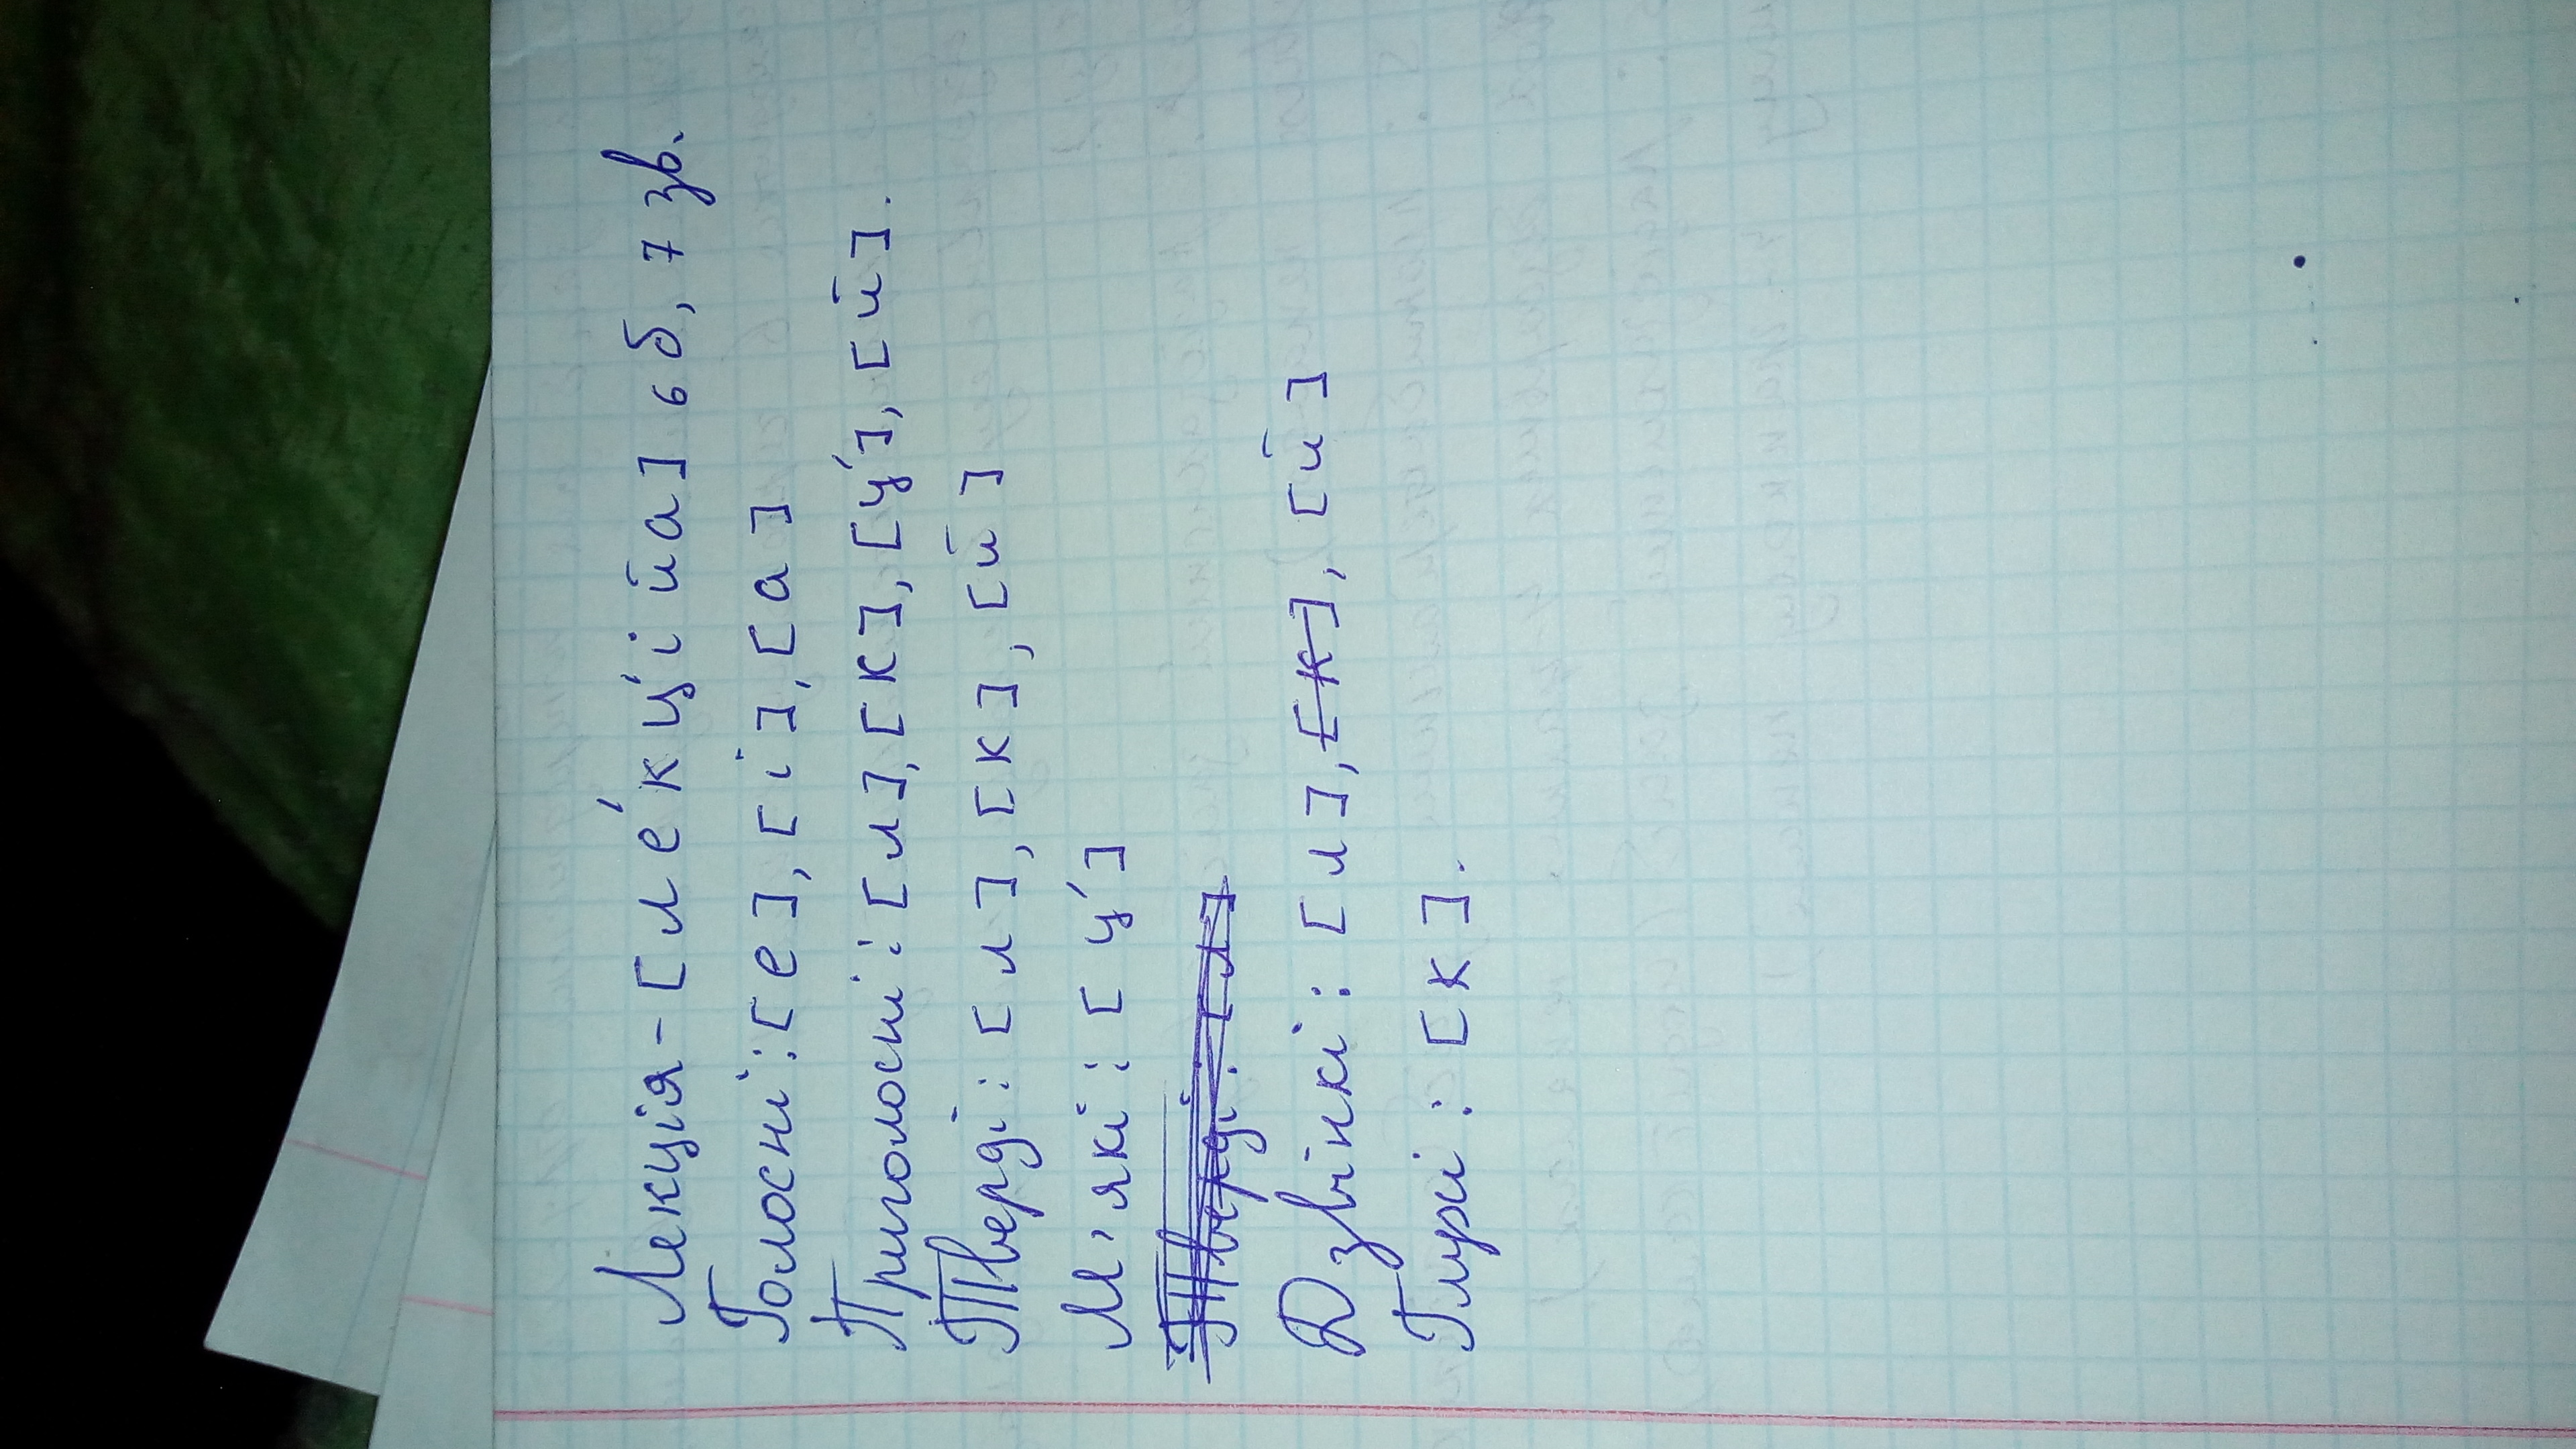 Лекція - [ л е́ к ц′ і й а ] 6 б, 7 зв.
Голосні : [ е ], [ і ], [ а ]
Приголосні : [ л ], [ к ], [ ц′ ], [ й ].
Тверді : [ л ], [ к ], [ й ]
М'які : [ ц′ ]
Тверді : [ л ]
Дзвінкі : [ л ], [ к ], [ й ]
Глухі : [ к ].